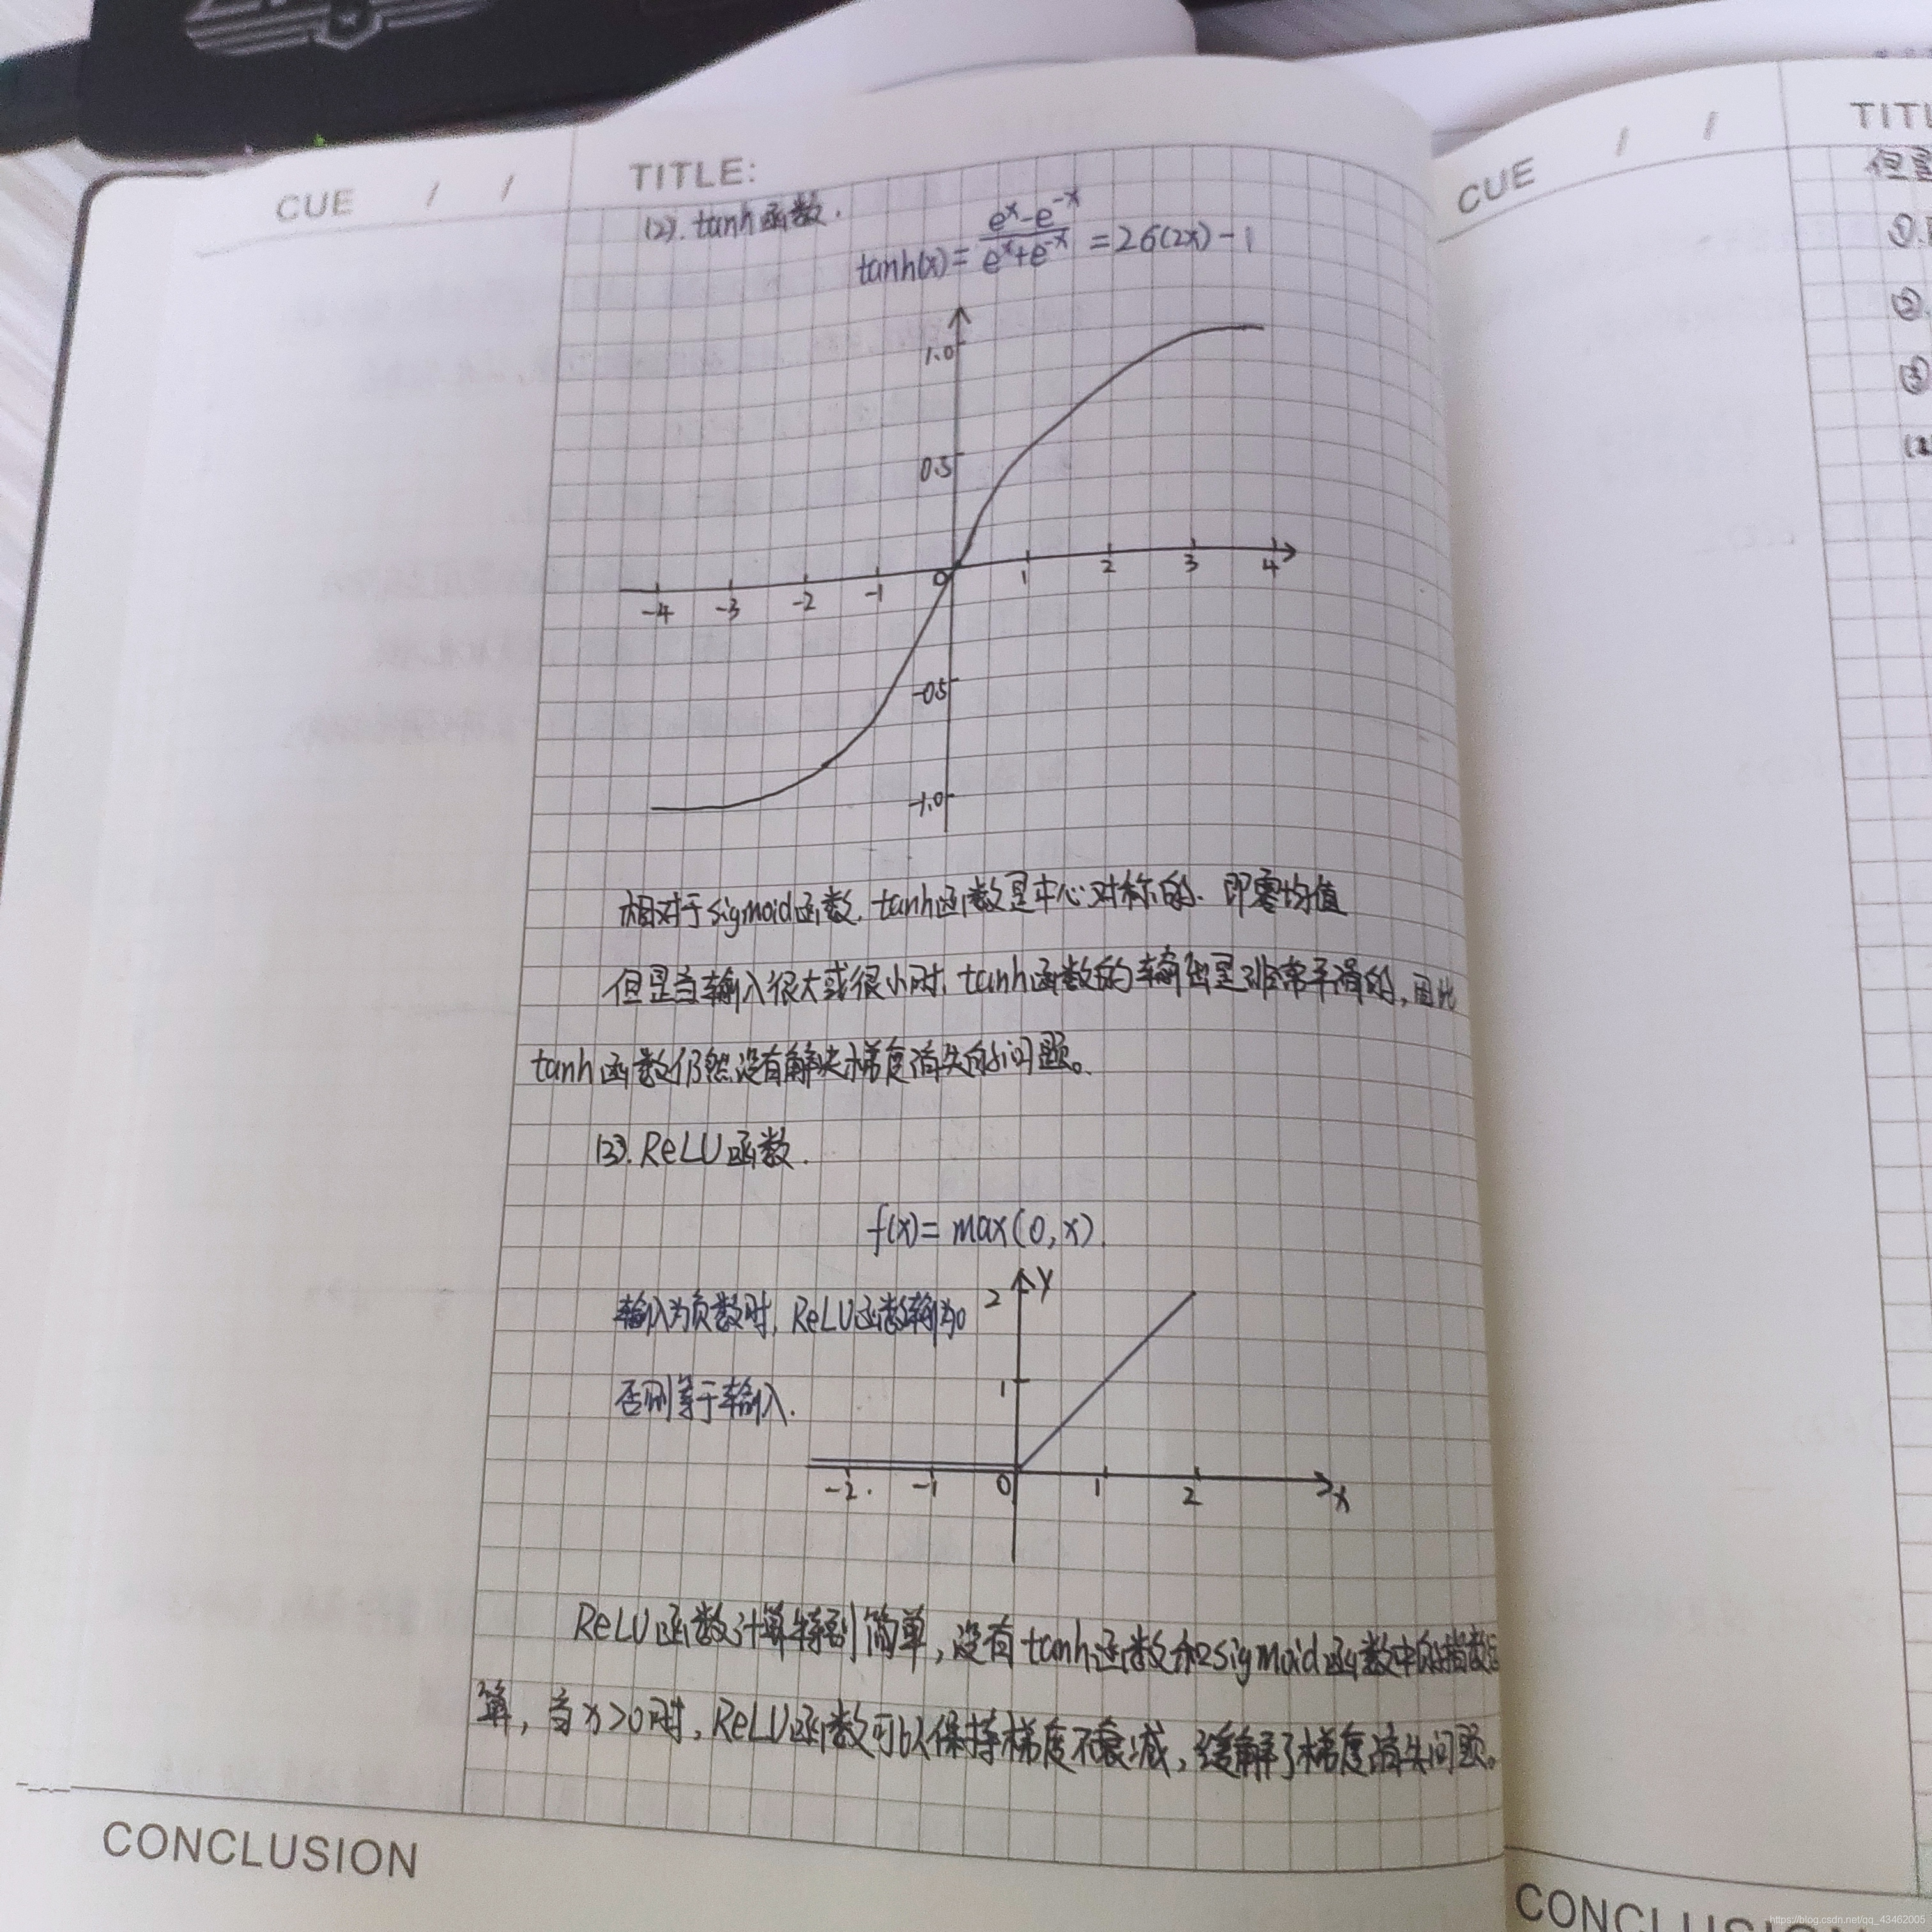 CUE / /
TITLE:
(2). tanh函数.
tanh(x)= (e^x-e^-x)/(e^x+e^-x) =2б(2x)-1
1.0
0.5
-4 -3 -2 -1 0 1 2 3 4
-0.5
-1.0
相对于sigmoid函数. tanh函数是中心对称的. 即零均值
但是当输入很大或很小时, tanh函数的输出是非常平滑的, 因此
tanh函数仍然没有解决梯度消失的问题。
(3). ReLU函数.
f(x)= max(0,x).
输入为负数时, ReLU函数输为0
否则等于输入.
2 y
1
-2. -1 0 1 2 x
ReLU函数计算特别简单, 没有tanh函数和sigmoid函数中的指数运
算, 当x>0时, ReLU函数可以保持梯度不衰减, 缓解了梯度消失问题。
CONCLUSION
CUE / /
TITL
但
①.
②.
③
CONCLUSION
https://blog.csdn.net/qq_43462005